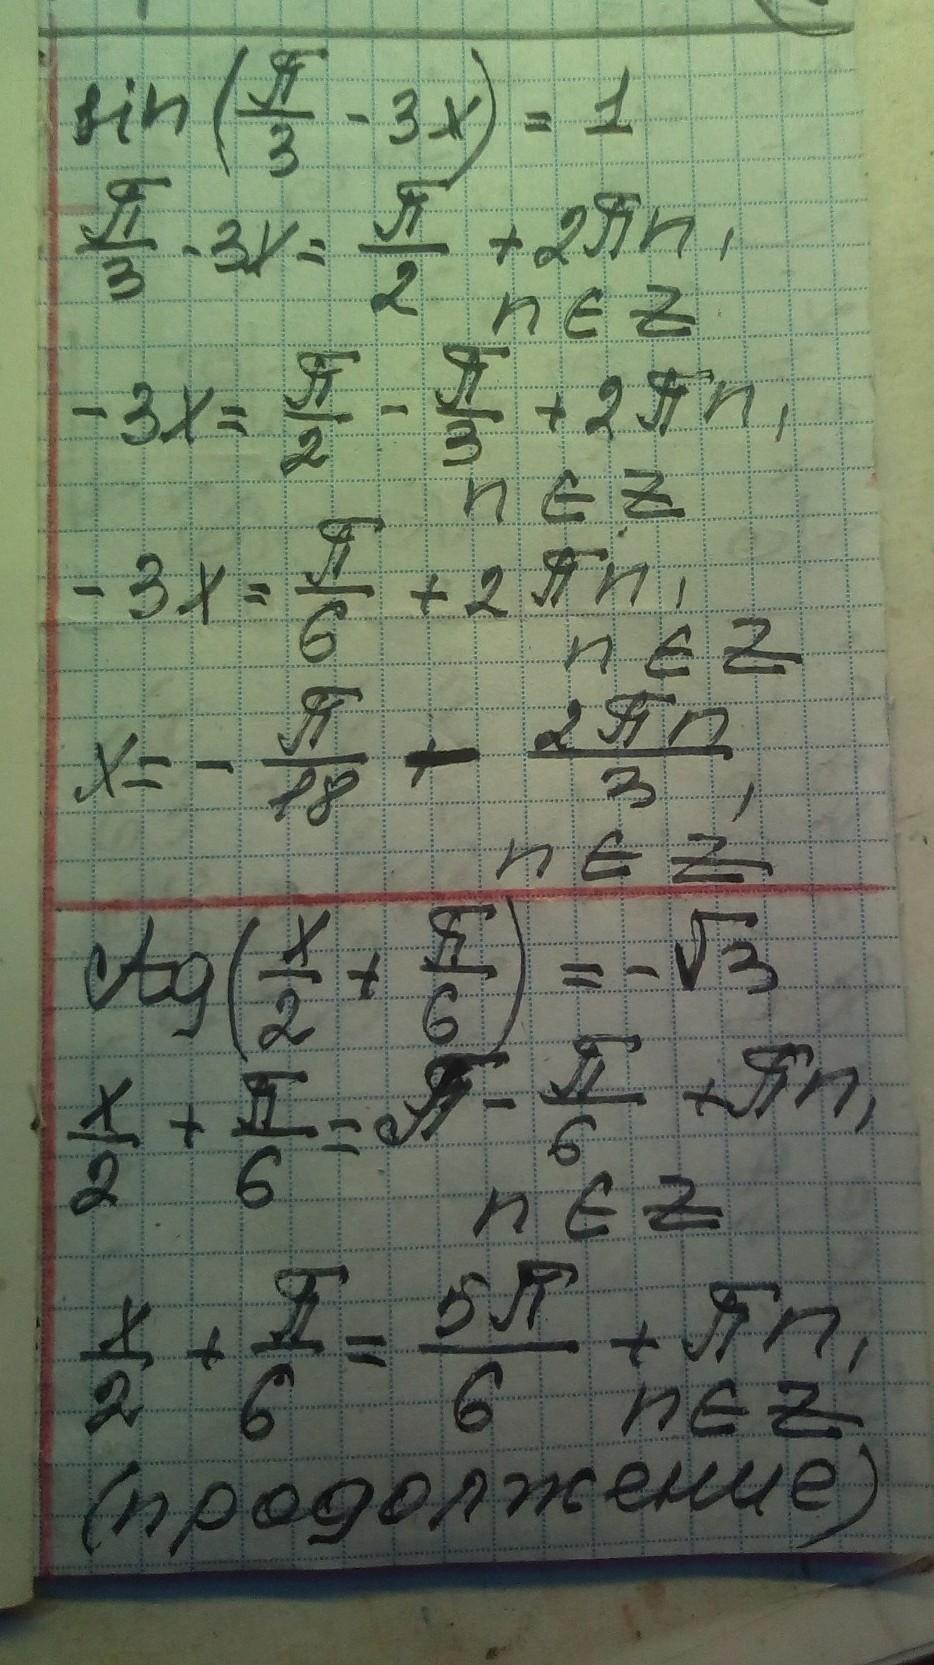 sin(π/3 - 3x) = 1
π/3 - 3x = π/2 + 2πn,
n ∈ Z
-3x = π/2 - π/3 + 2πn,
n ∈ Z
-3x = π/6 + 2πn,
n ∈ Z
x = - π/18 - 2πn/3,
n ∈ Z
ctg(x/2 + π/6) = -√3
x/2 + π/6 = π - π/6 + πn,
n ∈ Z
x/2 + π/6 = 5π/6 + πn,
n ∈ Z
(продолжение)